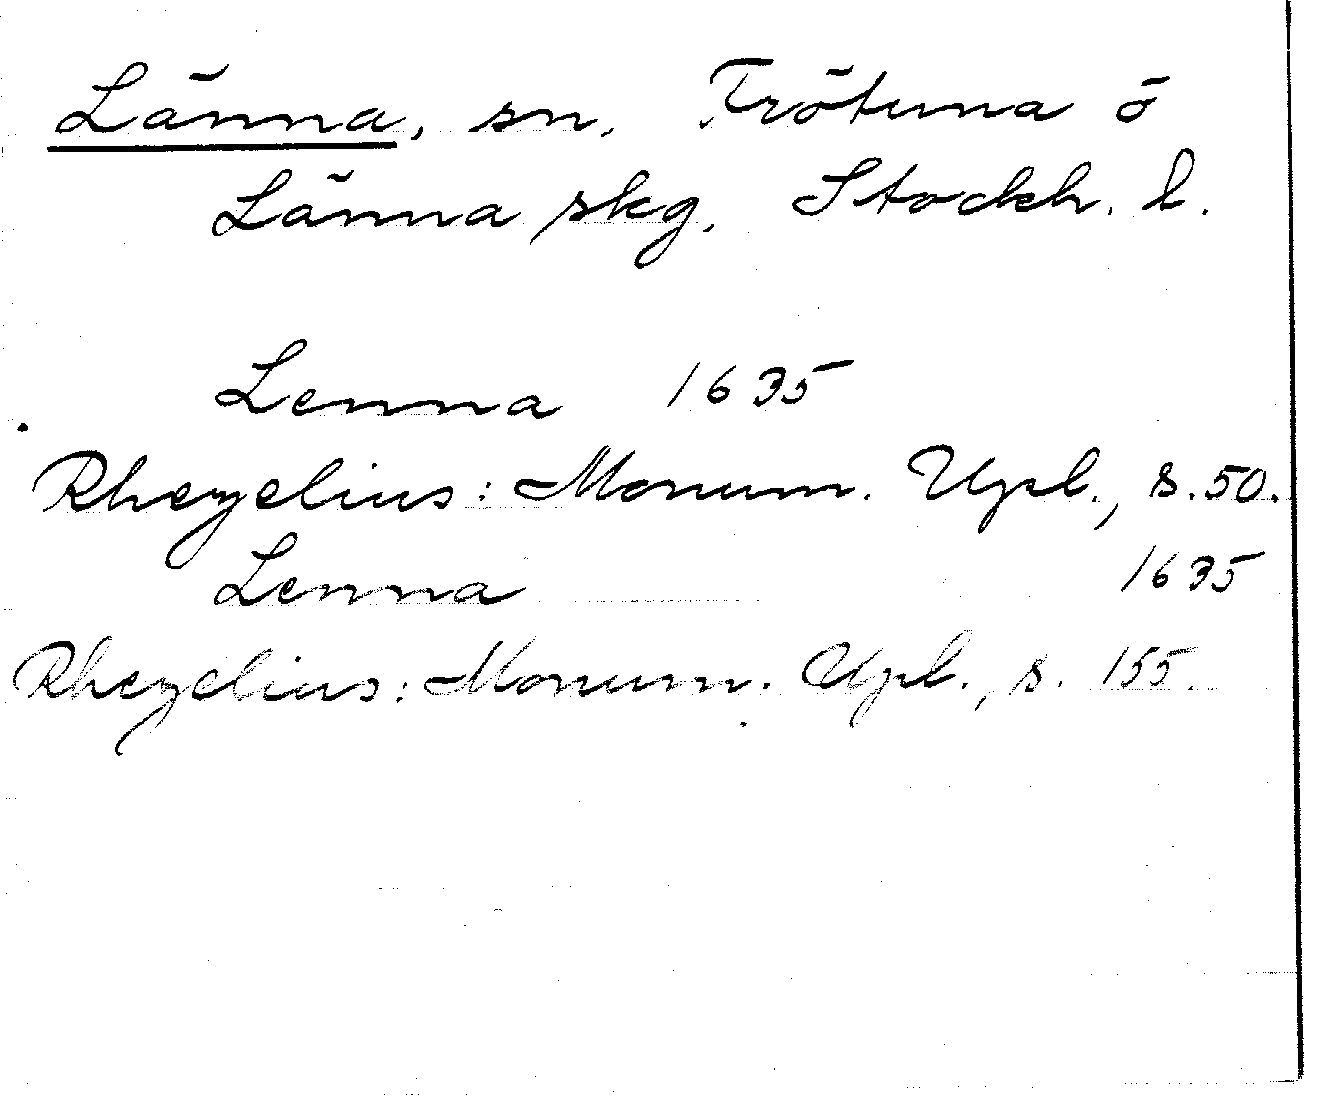 Länna, sn. Frötuna ö
Länna skg. Stockh. l.
Lenna 1635
Rhezelius: Monum. Upl., s. 50.
Lenna 1635
Rhezelius: Monum. Upl., s. 155.